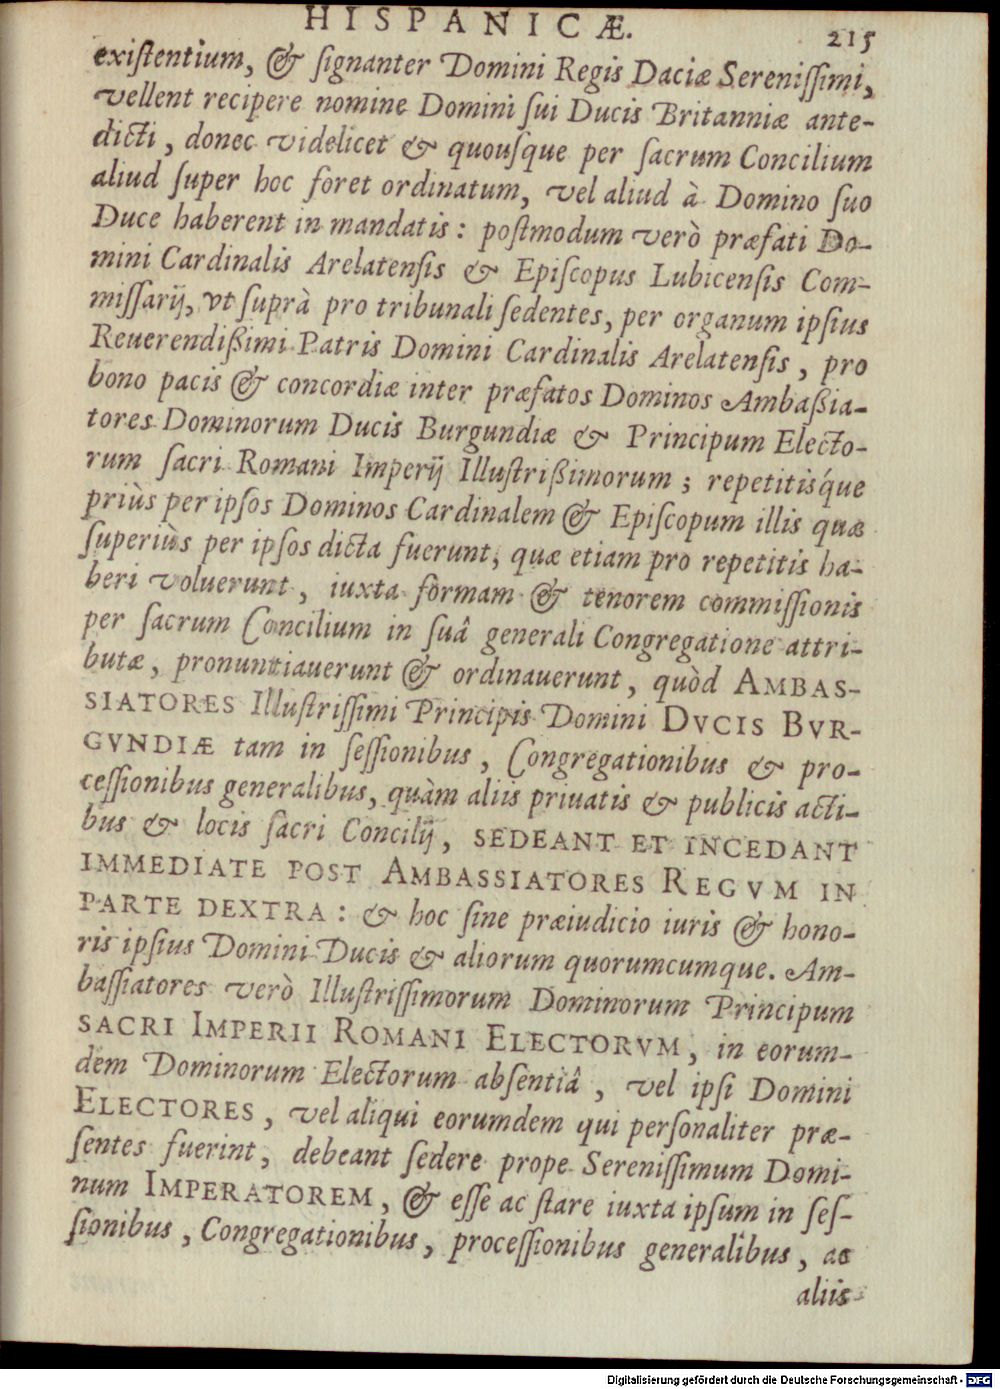 HISPANICÆ. 215
exiſtentium, & ſignanter Domini Regis Daciæ Sereniſſimi,
vellent recipere nomine Domini ſui Ducis Britanniæ ante-
dicti, donec videlicet & quouſque per ſacrum Concilium
aliud ſuper hoc foret ordinatum, vel aliud à Domino ſuo
Duce haberent in mandatis: poſtmodum verò præfati Do-
mini Cardinalis Arelatenſis & Epiſcopus Lubicenſis Com-
miſſarij, vt ſuprà pro tribunali ſedentes, per organum ipſius
Reuerendißimi Patris Domini Cardinalis Arelatenſis, pro
bono pacis & concordiæ inter præfatos Dominos Ambaßia-
tores Dominorum Ducis Burgundiæ & Principum Electo-
rum ſacri Romani Imperij Illuſtrißimorum; repetitiśque
priùs per ipſos Dominos Cardinalem & Epiſcopum illis quæ
ſuperiùs per ipſos dicta fuerunt, quæ etiam pro repetitis ha-
beri voluerunt, iuxta formam & tenorem commiſſionis
per ſacrum Concilium in ſuâ generali Congregatione attri-
butæ, pronuntiauerunt & ordinauerunt, quòd AMBAS-
SIATORES Illuſtriſſimi Principis Domini DVCIS BVR-
GVNDIÆ tam in ſeſſionibus, Congregationibus & pro-
ceſſionibus generalibus, quàm aliis priuatis & publicis acti-
bus & locis ſacri Concilij, SEDEANT ET INCEDANT
IMMEDIATE POST AMBASSIATORES REGVM IN
PARTE DEXTRA: & hoc ſine præiudicio iuris & hono-
ris ipſius Domini Ducis & aliorum quorumcumque. Am-
baſſiatores verò Illuſtriſſimorum Dominorum Principum
SACRI IMPERII ROMANI ELECTORVM, in eorum-
dem Dominorum Electorum abſentiâ, vel ipſi Domini
ELECTORES, vel aliqui eorumdem qui perſonaliter præ-
ſentes fuerint, debeant ſedere prope Sereniſſimum Domi-
num IMPERATOREM, & eſſe ac ſtare iuxta ipſum in ſeſ-
ſionibus, Congregationibus, proceſſionibus generalibus, ac
aliis
Digitalisierung gefördert durch die Deutsche Forschungsgemeinschaft - DFG